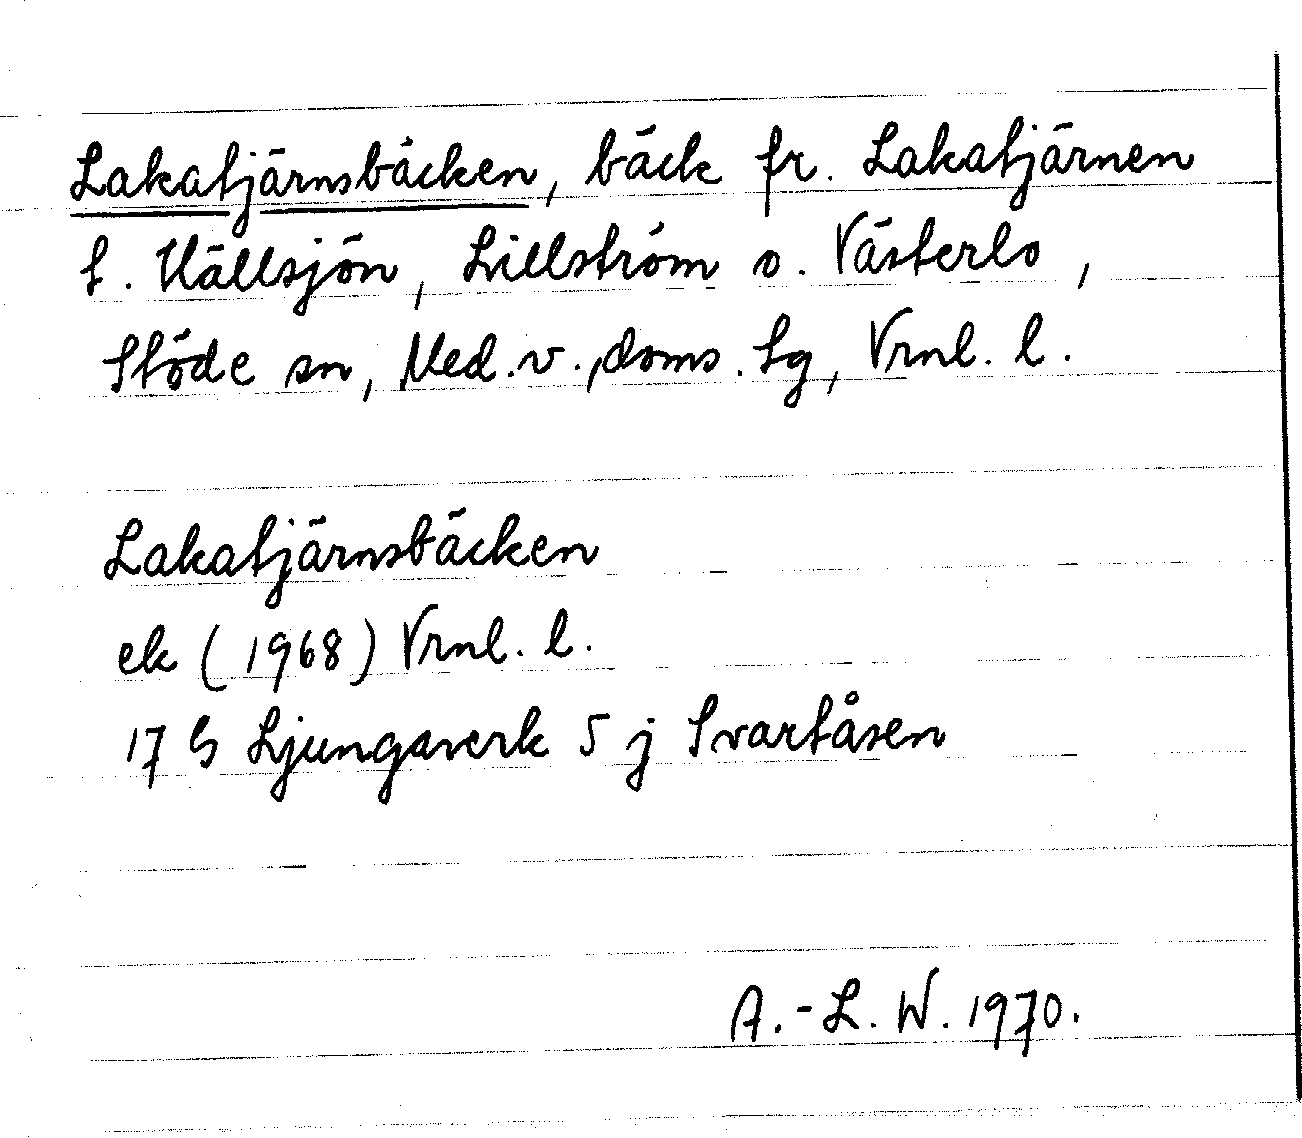 Lakatjärnsbäcken, bäck fr. Lakatjärnen
t. Hällsjön, Lillström o. Västerlo,
Stöde sn, Med. v., doms. sg, Vrnl. l.
Lakatjärnsbäcken
ek (1968) Vrnl. l.
17 G Ljungaverk 5 j Svartåsen
A.-L. W. 1970.